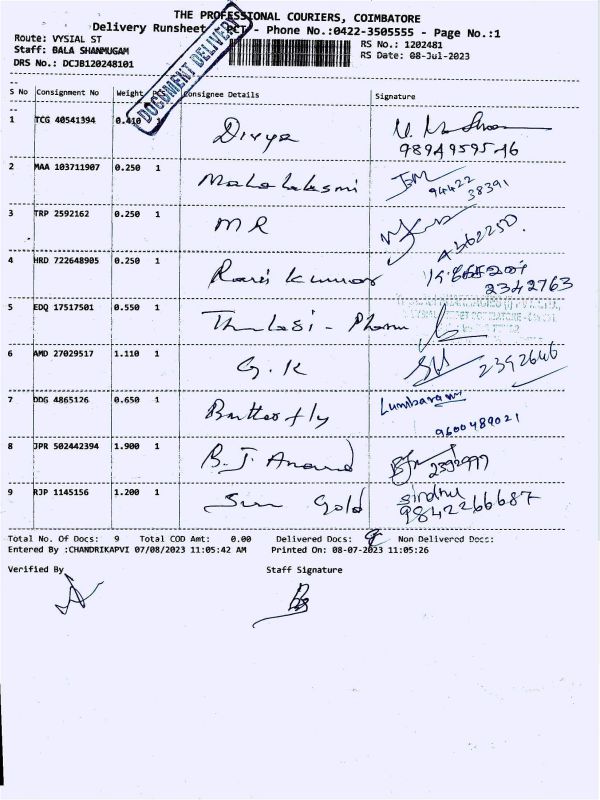 THE PROFESSIONAL COURIERS, COIMBATORE
Delivery Runsheet - PCT - Phone No.:0422-3505555 - Page No.:1
Route: VYSIAL ST
RS No.: 1202481
Staff: BALA SHANMUGAM
RS Date: 08-Jul-2023
DRS No.: DCJB120248101
DOCUMENT DELIVERY
S No Consignment No Weight Consignee Details Signature
1 TCG 40541394 0.410 Divya
2 MAA 103711907 0.250 1 Mahalakshmi 94422 38391
3 TRP 2592162 0.250 1 M R
4 HRD 722648905 0.250 1 Ravi Kumar 2342763
5 EDQ 17517501 0.550 1 Thulasi - Pharm
6 AMD 27029517 1.110 1 G. K 2392646
7 DDG 4865126 0.650 1 Butterfly
9600489021
8 JPR 502442394 1.900 1 B. J. Anand
9 RJP 1145156 1.200 1 Sun Gold sindhu
9842266687
Total No. Of Docs: 9 Total COD Amt: 0.00 Delivered Docs: 9 Non Delivered Docs:
Entered By :CHANDRIKAPVI 07/08/2023 11:05:42 AM Printed On: 08-07-2023 11:05:26
Verified By Staff Signature